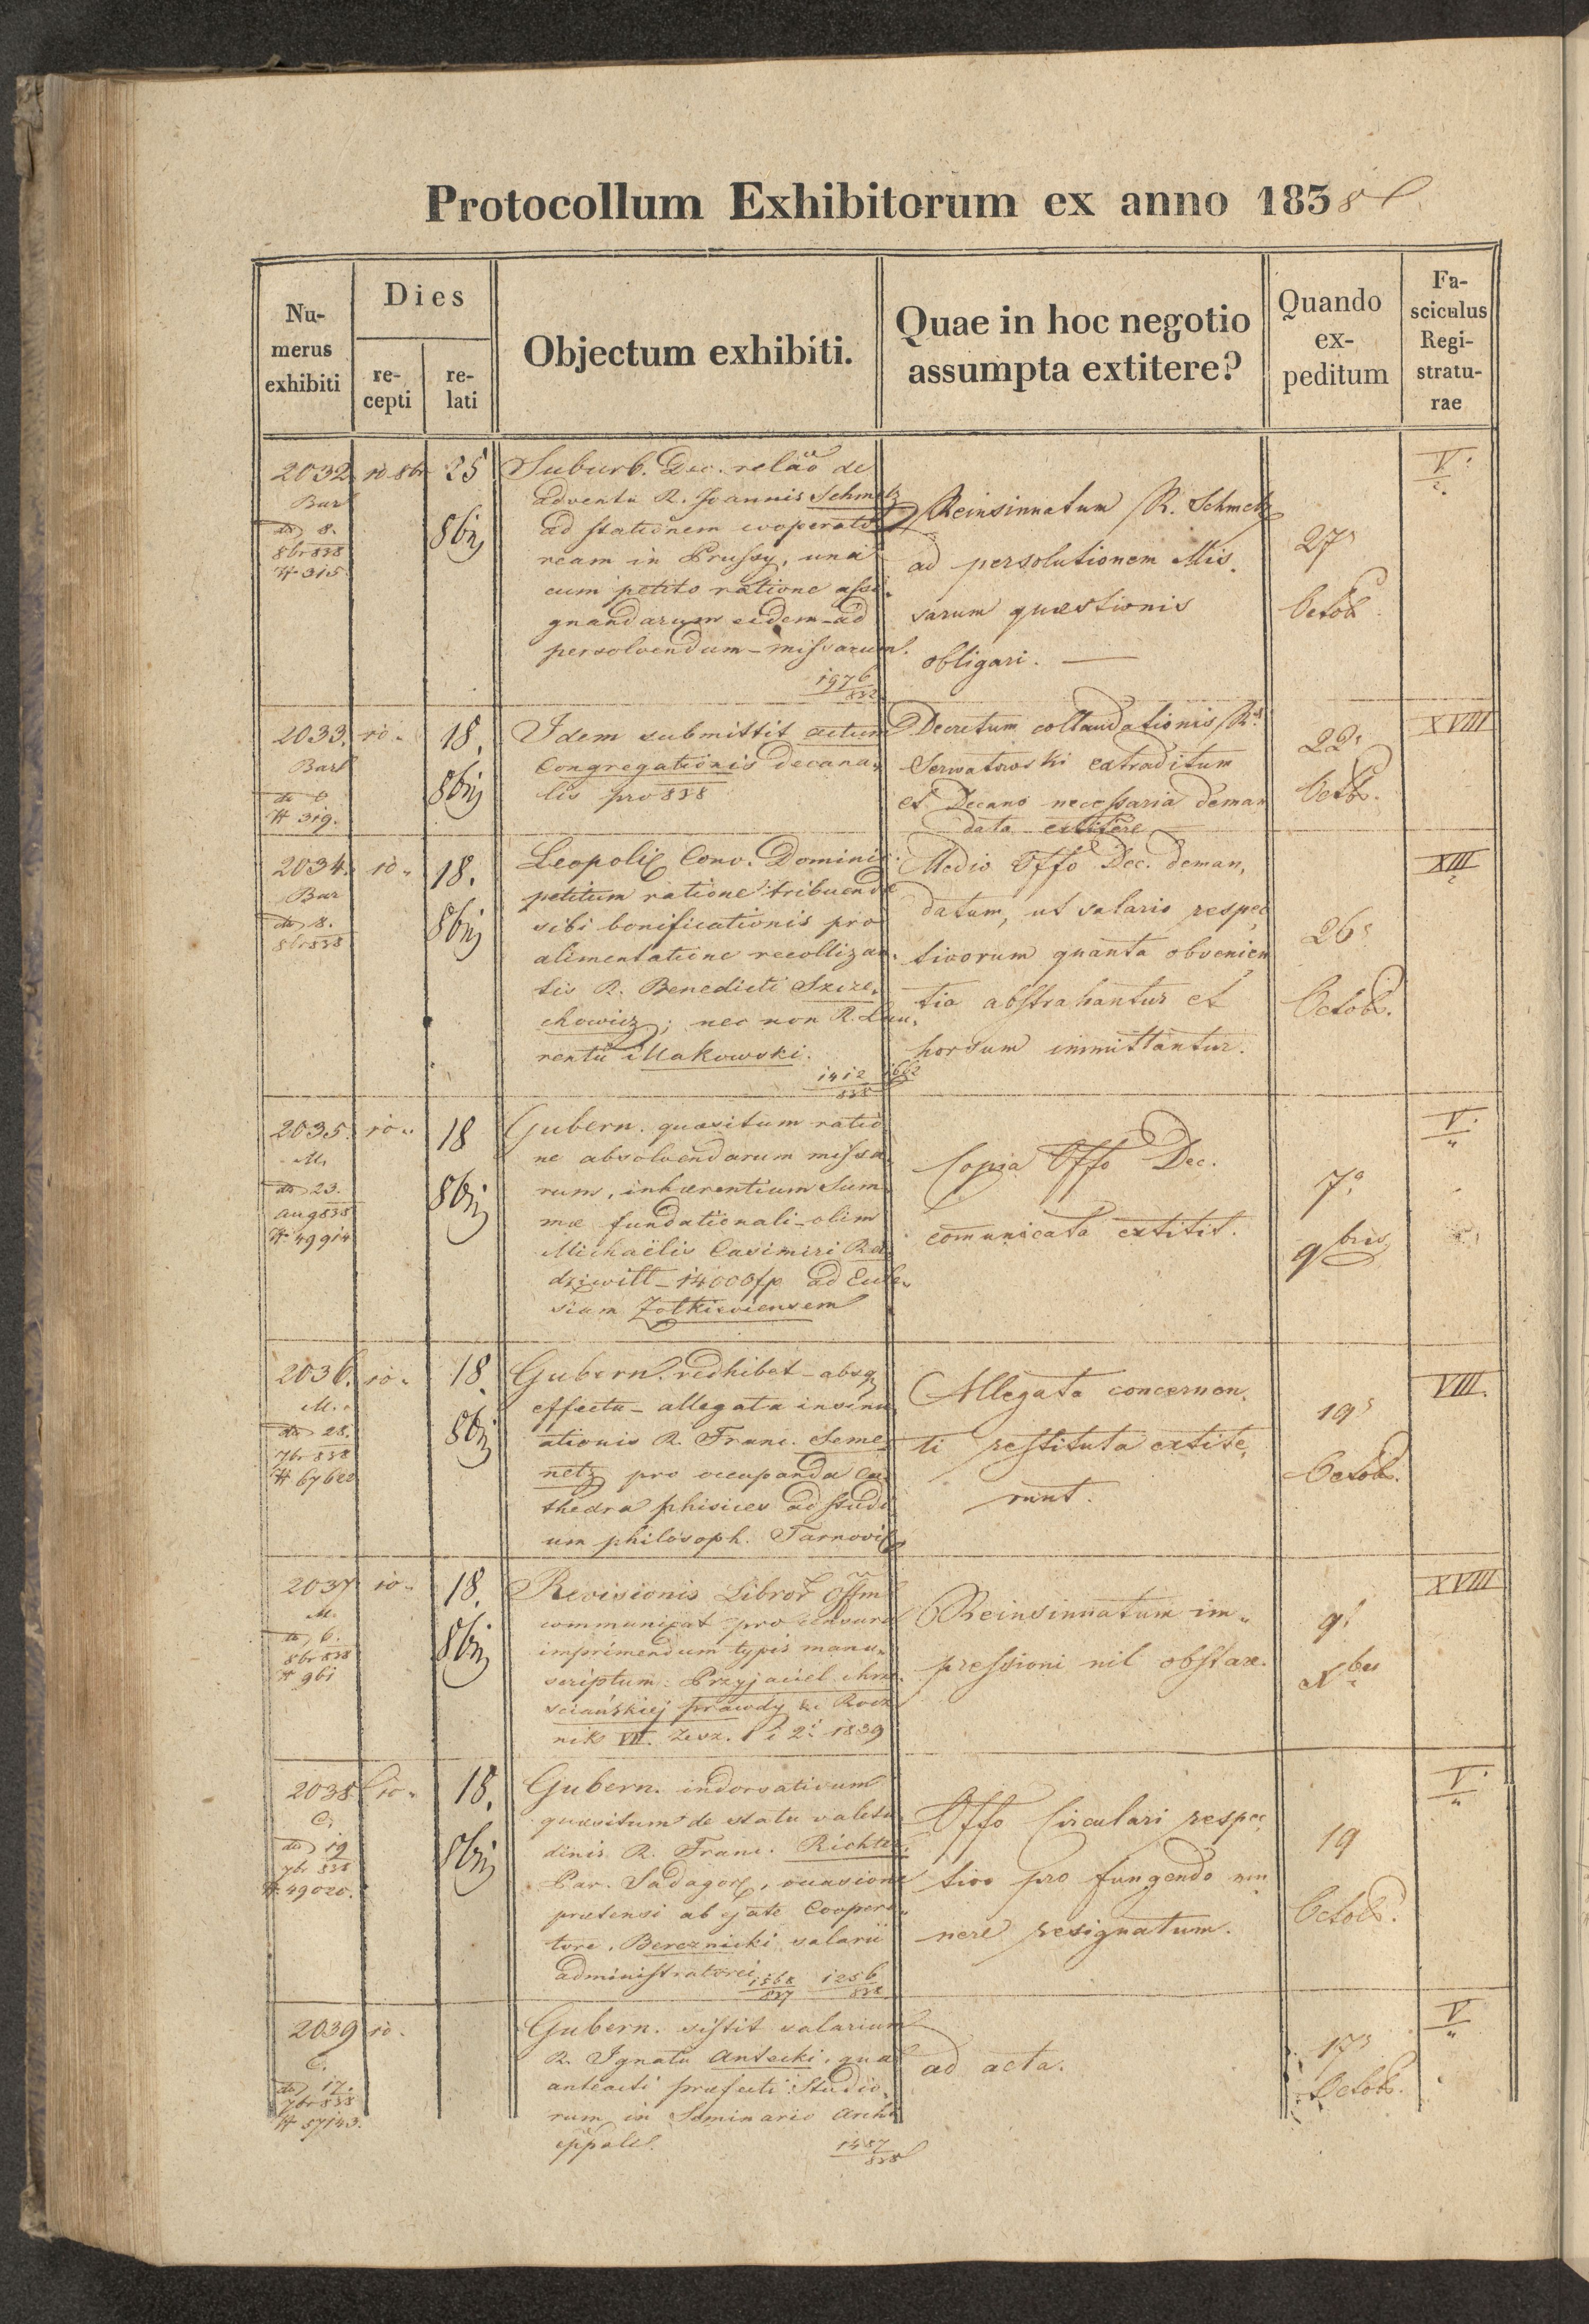 Protocollum Exhibitorum ex anno 1838
Numerus exhibiti
Dies
recepti
relati
Objectum exhibiti.
Quae in hoc negotio assumpta extitere?
Quando expeditum
Fasciculus Registraturae
2032
10 8br
25
8bris
8.
8br 838
# 315
Suburb. Dec. relāo de
adventu R. Joannis Schmetz
ad stationem coopera
ream in Prussy, una
cum petito ratione assi-
gnandarum eidem ad
persolvendum missarum.
1976
838
Reinsinuatum R. Schmetz
ad persolutionem Mis-
sarum quæstionis
obligari.
27
Octob
V.
2033.
10.
18.
8bris
# 319.
Idem submittit actum
Congregationis decana-
lis pro 838
Decretum collaudationis R.
Serwatowski extraditum
et Decano necessaria deman
data extitere
22
Octb.
XVIII
2034.
10.
18.
8bris
8.
8br 838
Leopoli Conv. Dominic.
petitum ratione tribuendæ
sibi bonificationis pro
alimentatione recolligan-
tis R. Benedicti Szcze-
chowicz; nec non R. Lau-
rentii Makowski.
1412 1662
838
Medio Offo Dec. deman-
datum, ut salario respec
tivorum quanta obvenien
tia abstrahantur et
horsum immittantur.
26
Octob.
XIII
2035.
M.
23.
Aug 838
# 49914
10.
18
8bris
Gubern. quæsitum ratio
ne absolvendarum missa-
rum, inhærentium Sum-
mæ fundationali olim
Michaëlis Casimiri Ra-
dziwill 14000 fp ad Eccle-
siam Zołkieviensem
Copia Offo Dec.
comunicata extitit.
7
9bris
V.
2036.
M.
28.
7br 838
# 67620
10.
18.
8bris
Gubern. redhibet absq
effectu allegata insinu-
ationis R. Franc. Seme-
netz pro occupanda Ca-
thedra phisices ad studi
um philosoph. Tarnovi
Allegata concernen-
ti restituta extite-
runt.
19
Octob.
VIII.
2037
M.
6.
8br 838
# 961
10.
18.
8bris
Revisionis Libror Offm
communicat pro censura
imprimendum typis manu-
scriptum: Przyjaciel chrze
sciańskiej prawdy &c Rocz
nik VII. Zesz. 1 i 2. 1839
Reinsinuatum im-
pressioni nil obstare.
9
Xbris
XVIII
2038
C.
19
7br 838
# 49020.
10.
18.
8bris
Gubern. indorsativum
quæsitum de statu valetu
dinis R. Franc. Richter,
Par. Sadagor, occasione
prætensi ab ejate Coopera-
tore, Bereznicki salarii
administratorei
1568 1256
837 838
Offo Circulari respec-
tivo pro fungendo mu
nere resignatum.
19
Octob.
V.
2039
C.
17.
7br 838
# 57143.
10.
Gubern. sistit salarium
R. Ignatii Antecki, qua
anteacti præfecti Studio-
rum in Seminario Archi
eppali.
1457
838
ad acta.
17
Octob.
V